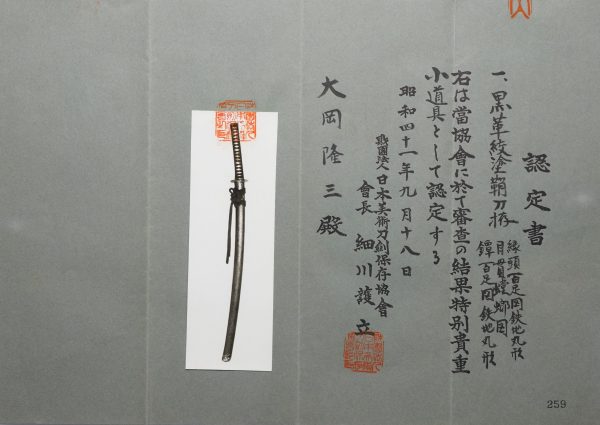 認定書
一、黒革紋塗鞘刀拵
縁頭百足図鉄地丸形
目貫蟷螂図
鐔百足図鉄地丸形
右は當協會に於て審査の結果特別貴重
小道具として認定する
昭和四十一年九月十八日
財團法人日本美術刀劍保存協會
會長 細川護立
大岡隆三殿
259